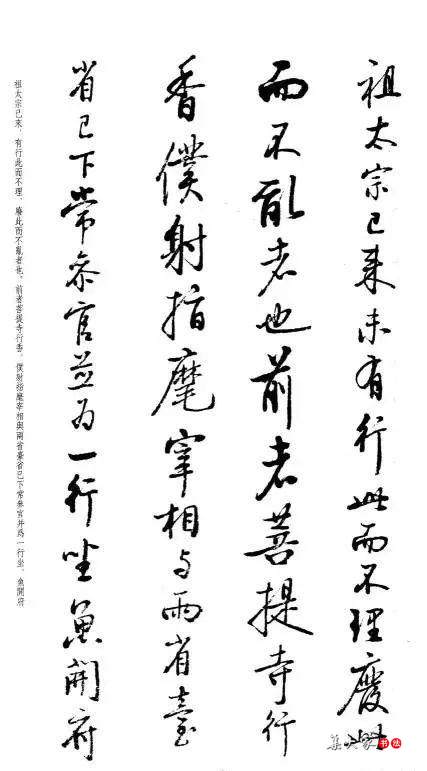 祖太宗已来未有行此而不理廢此
而不亂者也前者菩提寺行
香僕射指麾宰相与兩省臺
省已下常參官並为一行坐魚開府
祖太宗已來,有行此而不理、廢此而不亂者也。前者菩提寺行香,僕射指麾宰相與兩省臺省已下常參官并爲一行坐,魚開府
集大家书法